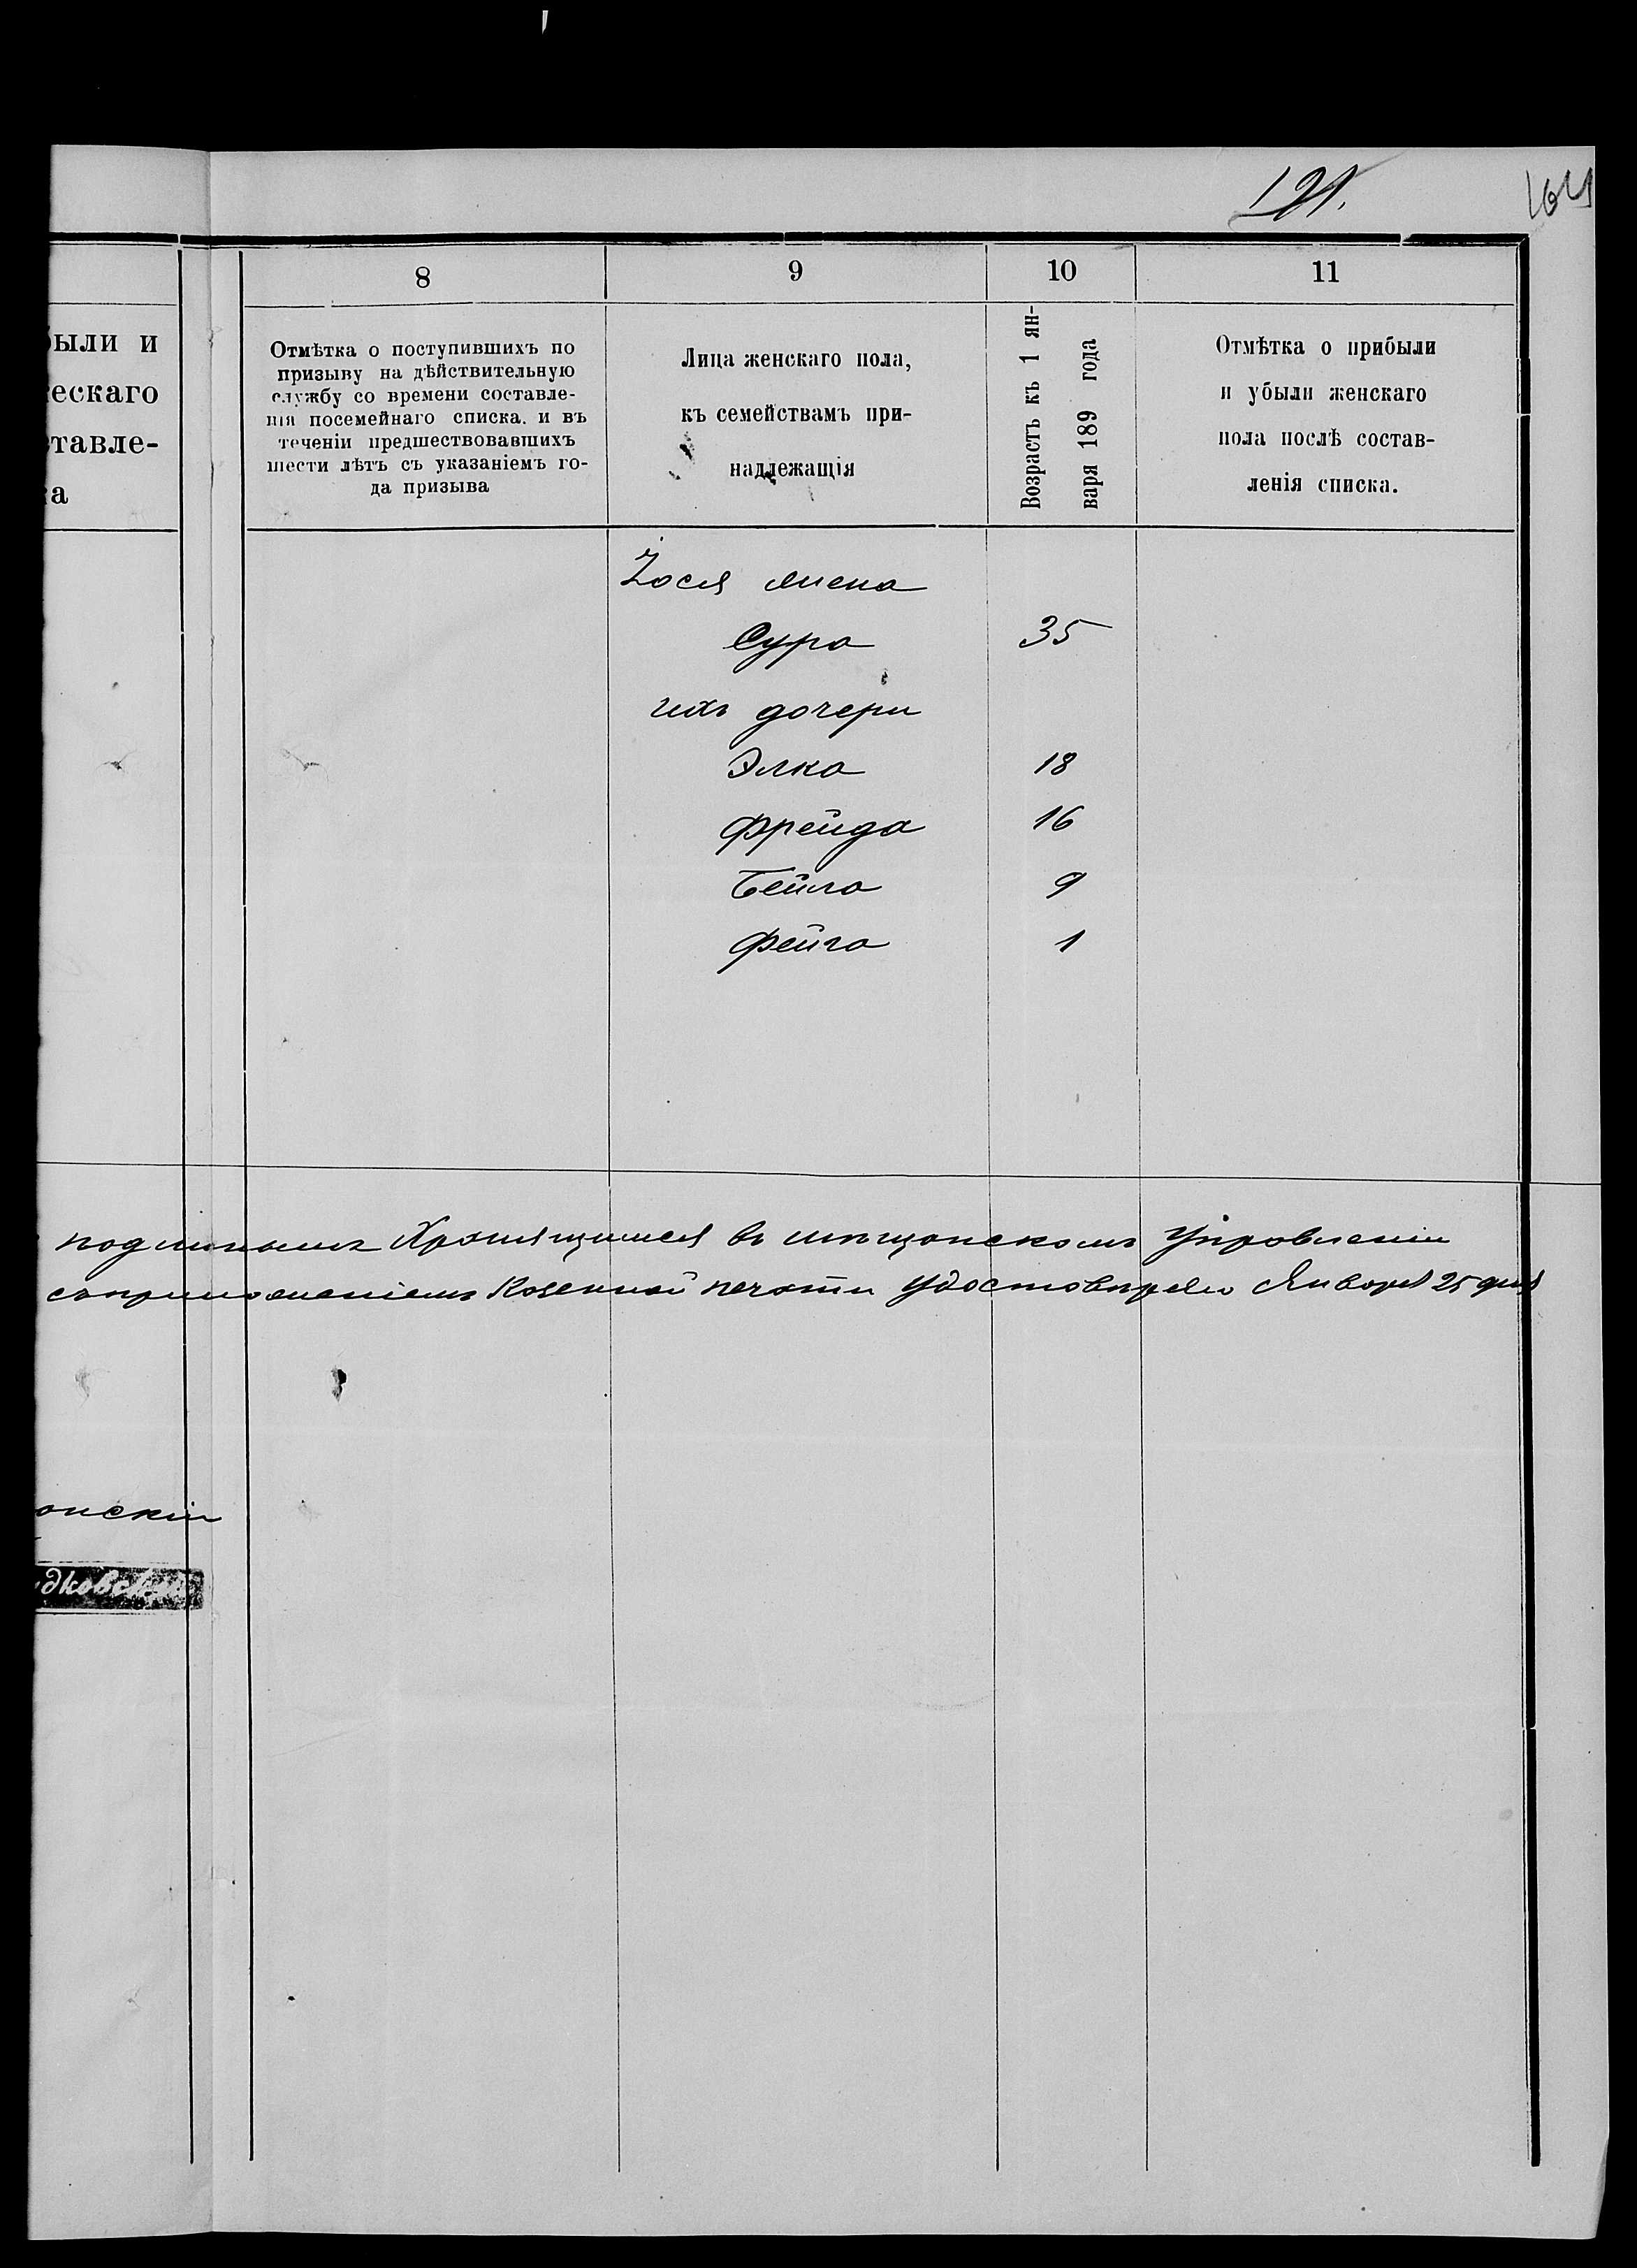 121.
164
8
9
10
11
были и
ческаго
ставле-
ка
Отмѣтка о поступившихъ по
призыву на дѣйствительную
службу со времени составле-
нія посемейнаго списка. и въ
теченіи предшествовавшихъ
шести лѣтъ съ указаніемъ го-
да призыва
Лица женскаго пола,
къ семействамъ при-
надлежащія
Возрастъ къ 1 ян-
варя 189 года
Отмѣтка о прибыли
и убыли женскаго
пола послѣ состав-
ленія списка.
жена
Сура 35
ихъ дочери
Элка 18
Фрейда 16
Бейла 9
Фейга 1
подлиннымъ Хранящимся въ мѣщанскомъ Управленіи
съприложеніемъ Казенной печати Удостовѣряю Января 25 дня
анскій
дковскій